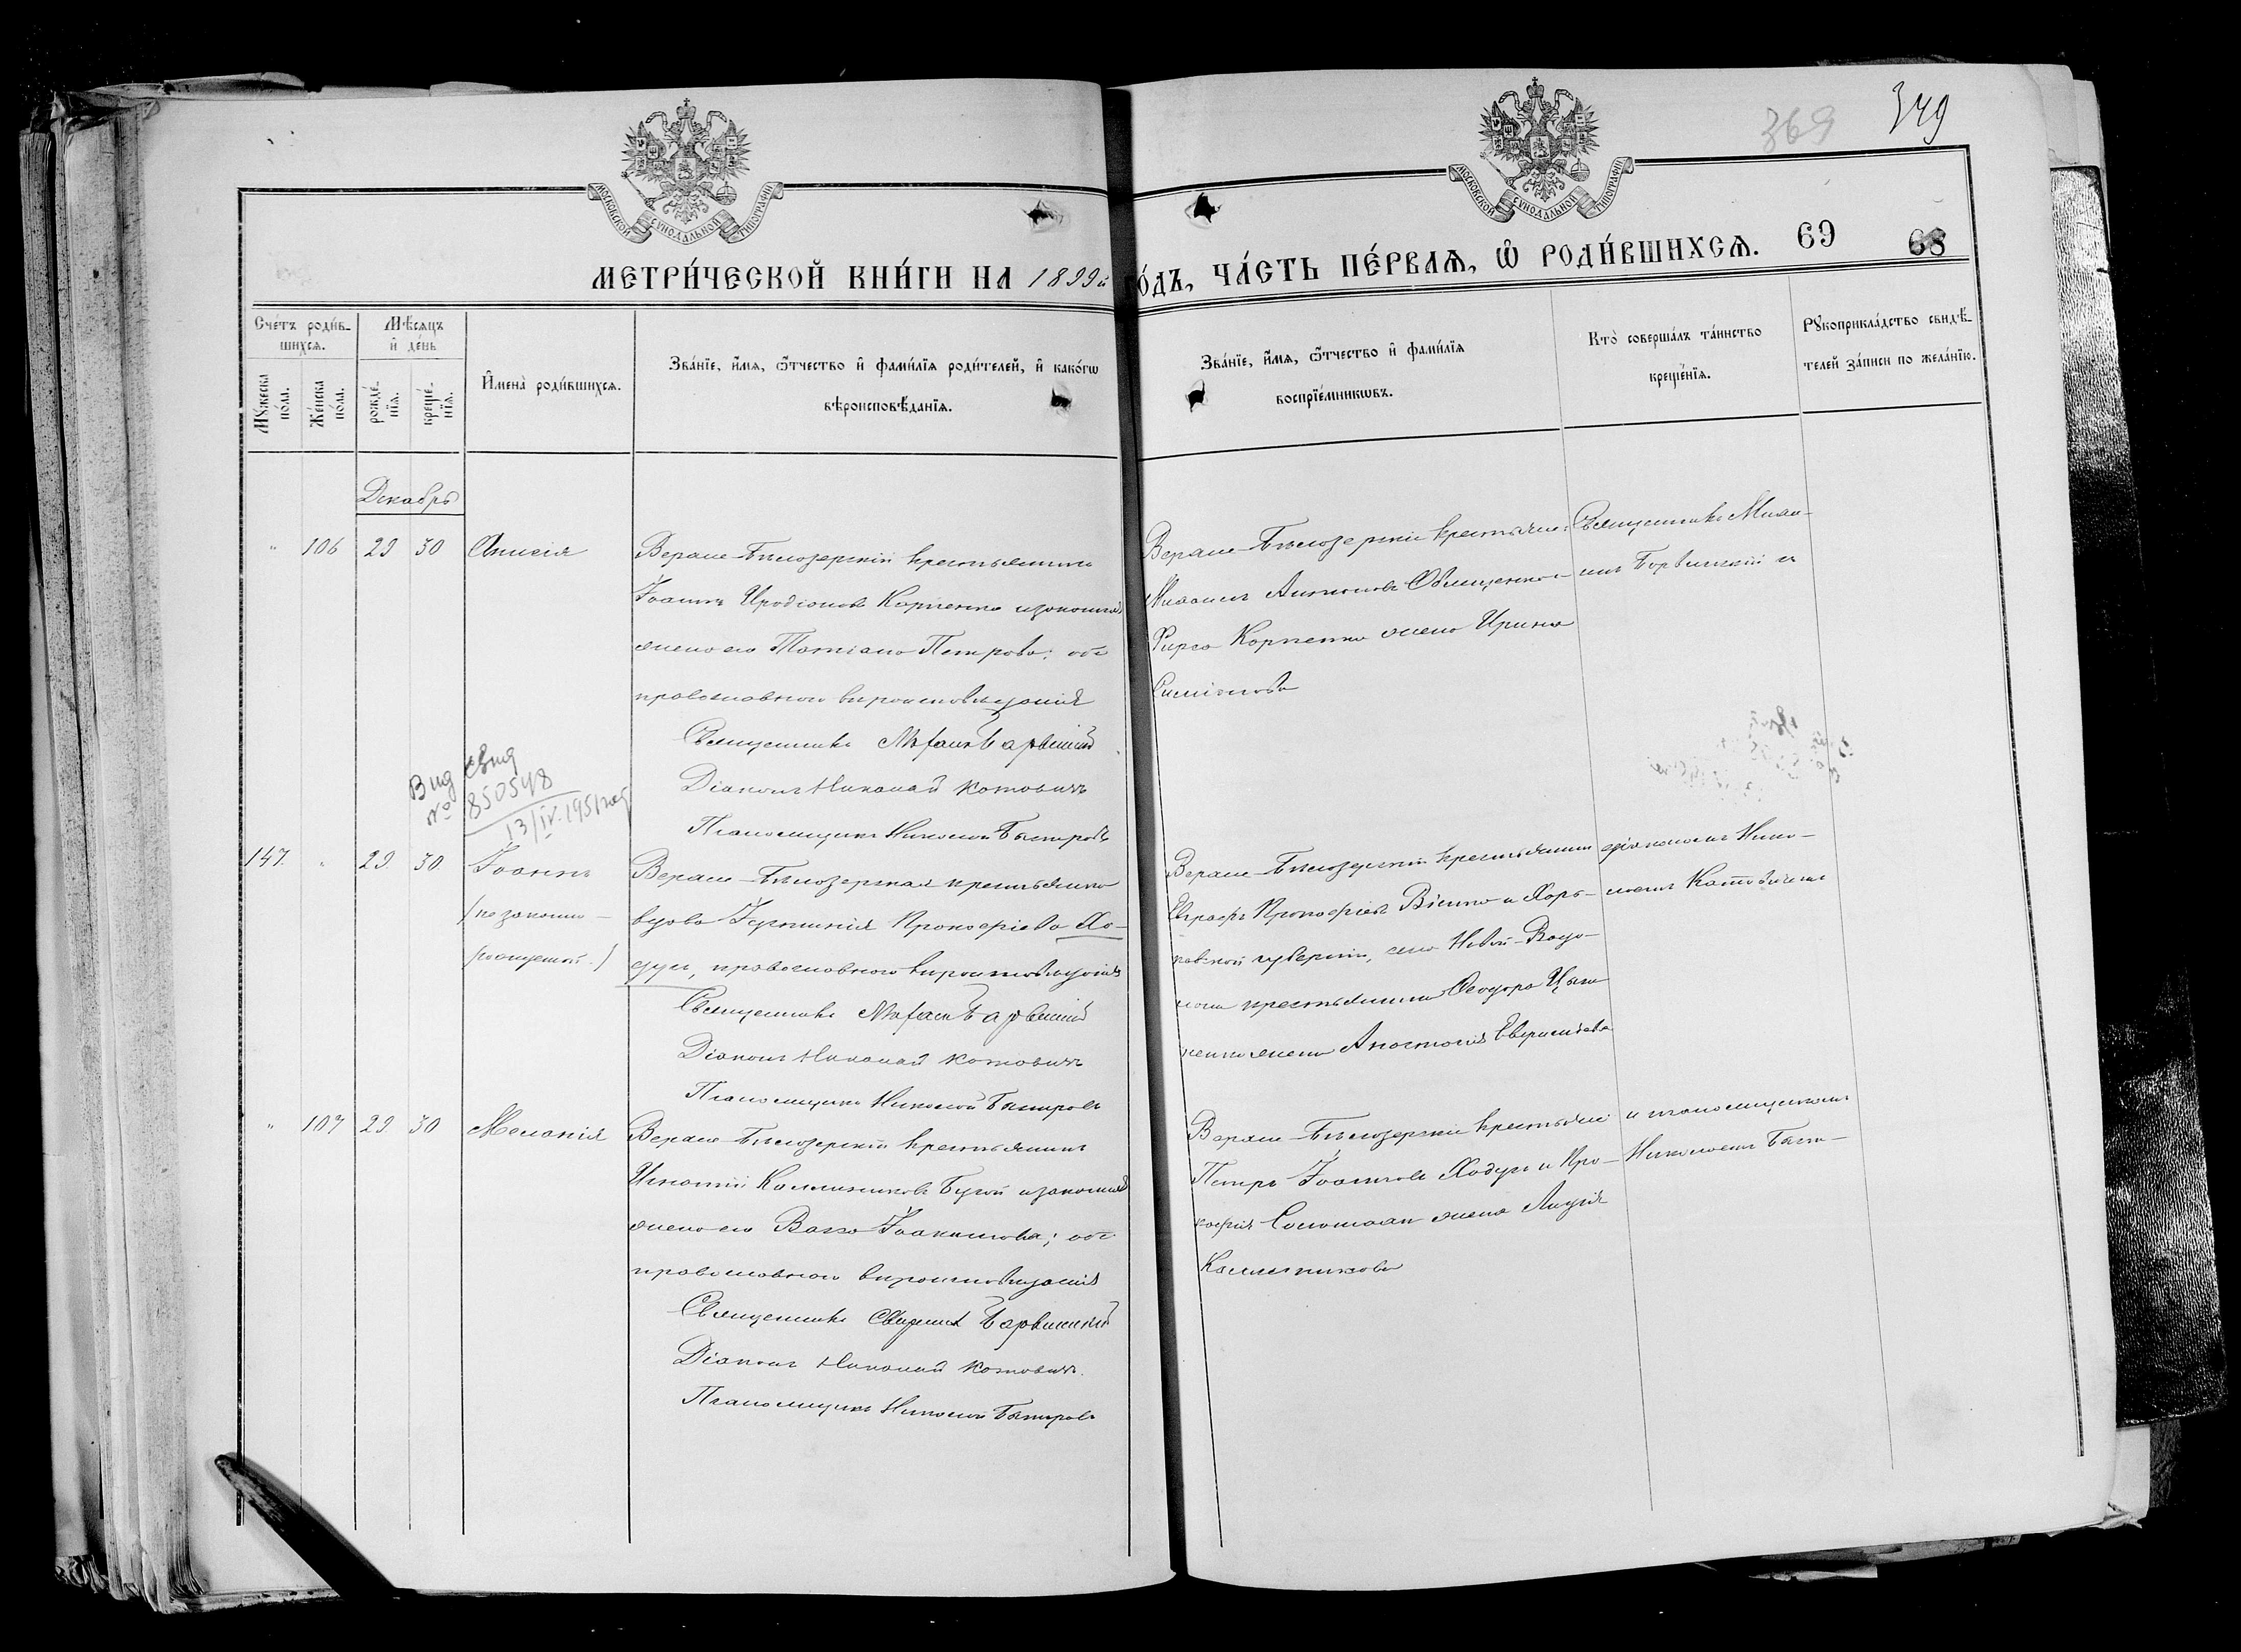 369 349
МОСКОВСКОЙ СУНОДАЛЬНОЙ ТИПОГРАФІИ
МОСКОВСКОЙ СУНОДАЛЬНОЙ ТИПОГРАФІИ
МЕТРИ́ЧЕСКОЙ КНИ́ГИ НА 1899й ГО́ДЪ, ЧА́СТЬ ПЕ́РВАѦ, Ѡ҆ РОДИ́ВШИХСѦ. 69 68
Сче́тъ роди́в-
шихсѧ.
Мѣ́сѧцъ
и҆ де́нь
Мꙋ́жеска
по́ла.
Же́нска
по́ла.
рожде́-
нїѧ.
креще́-
нїѧ.
И҆мена̀ роди́вшихсѧ.
Зва́нїе, и҆́мѧ, ѻ҆́тчество и҆ фами́лїѧ роди́телей, и҆ како́гѡ
вѣроисповѣ́данїѧ.
Зва́нїе, и҆́мѧ, ѻ҆́тчество и҆ фами́лїѧ
воспрїе́мникѡвъ.
Кто̀ соверша́лъ та́инство
креще́нїѧ.
Рꙋкоприкла́дство свидѣ́-
телей за́писи по жела́нїю.
Декабрь
" 106 29 30 Анисія
Верхне-Бѣлозерскій крестьянинъ
Іоаннъ Иродіоновъ Карпенко и законная
жена его Татіана Петрова; оба
православнаго вѣроисповѣданія
Священникъ
Діаконъ Николай Котовичъ
Псаломщикъ Николай
Верхне-Бѣлозерскіе крестьяне:
Михаилъ Антоновъ Онищенко и
Фирса Карпенка жена Ирина
Симеонова
Священникъ Миха-
илъ Борвинскій и
Вид свид
№ 850548
13/IV-1951год
147. " 29. 30 Іоаннъ
(незаконно-
рожденный.)
Верхне-Бѣлозерская крестьянка
вдова Іустинія Прокофіева Хо-
дусъ, православнаго вѣроисповѣданія
Священникъ
Діаконъ Николай Котовичъ
Псаломщикъ Николай
Верхне-Бѣлозерскій крестьянинъ
Евграфъ Прокофіевъ и Харь-
ковской губерніи, села Новой-Водо-
лаги крестьянина Ѳеодора Цыга
ненка жена Анастасія
діакономъ Нико-
лаемъ Котовичемъ
" 107 29. 30 Меланія
Верхне-Бѣлозерскій крестьянинъ
Игнатій Каллиниковъ Бугай и законная
жена его Васса Іоакимова; оба
православнаго вѣроисповѣданія
Священникъ
Діаконъ Николай Котовичъ.
Псаломщикъ Николай
Верхне-Бѣлозерскіе крестьяне
Петръ Іоанновъ Ходусъ и Про-
кофія Соломахи жена Лидія
Каллиникова
и псаломщикомъ
Николаемъ